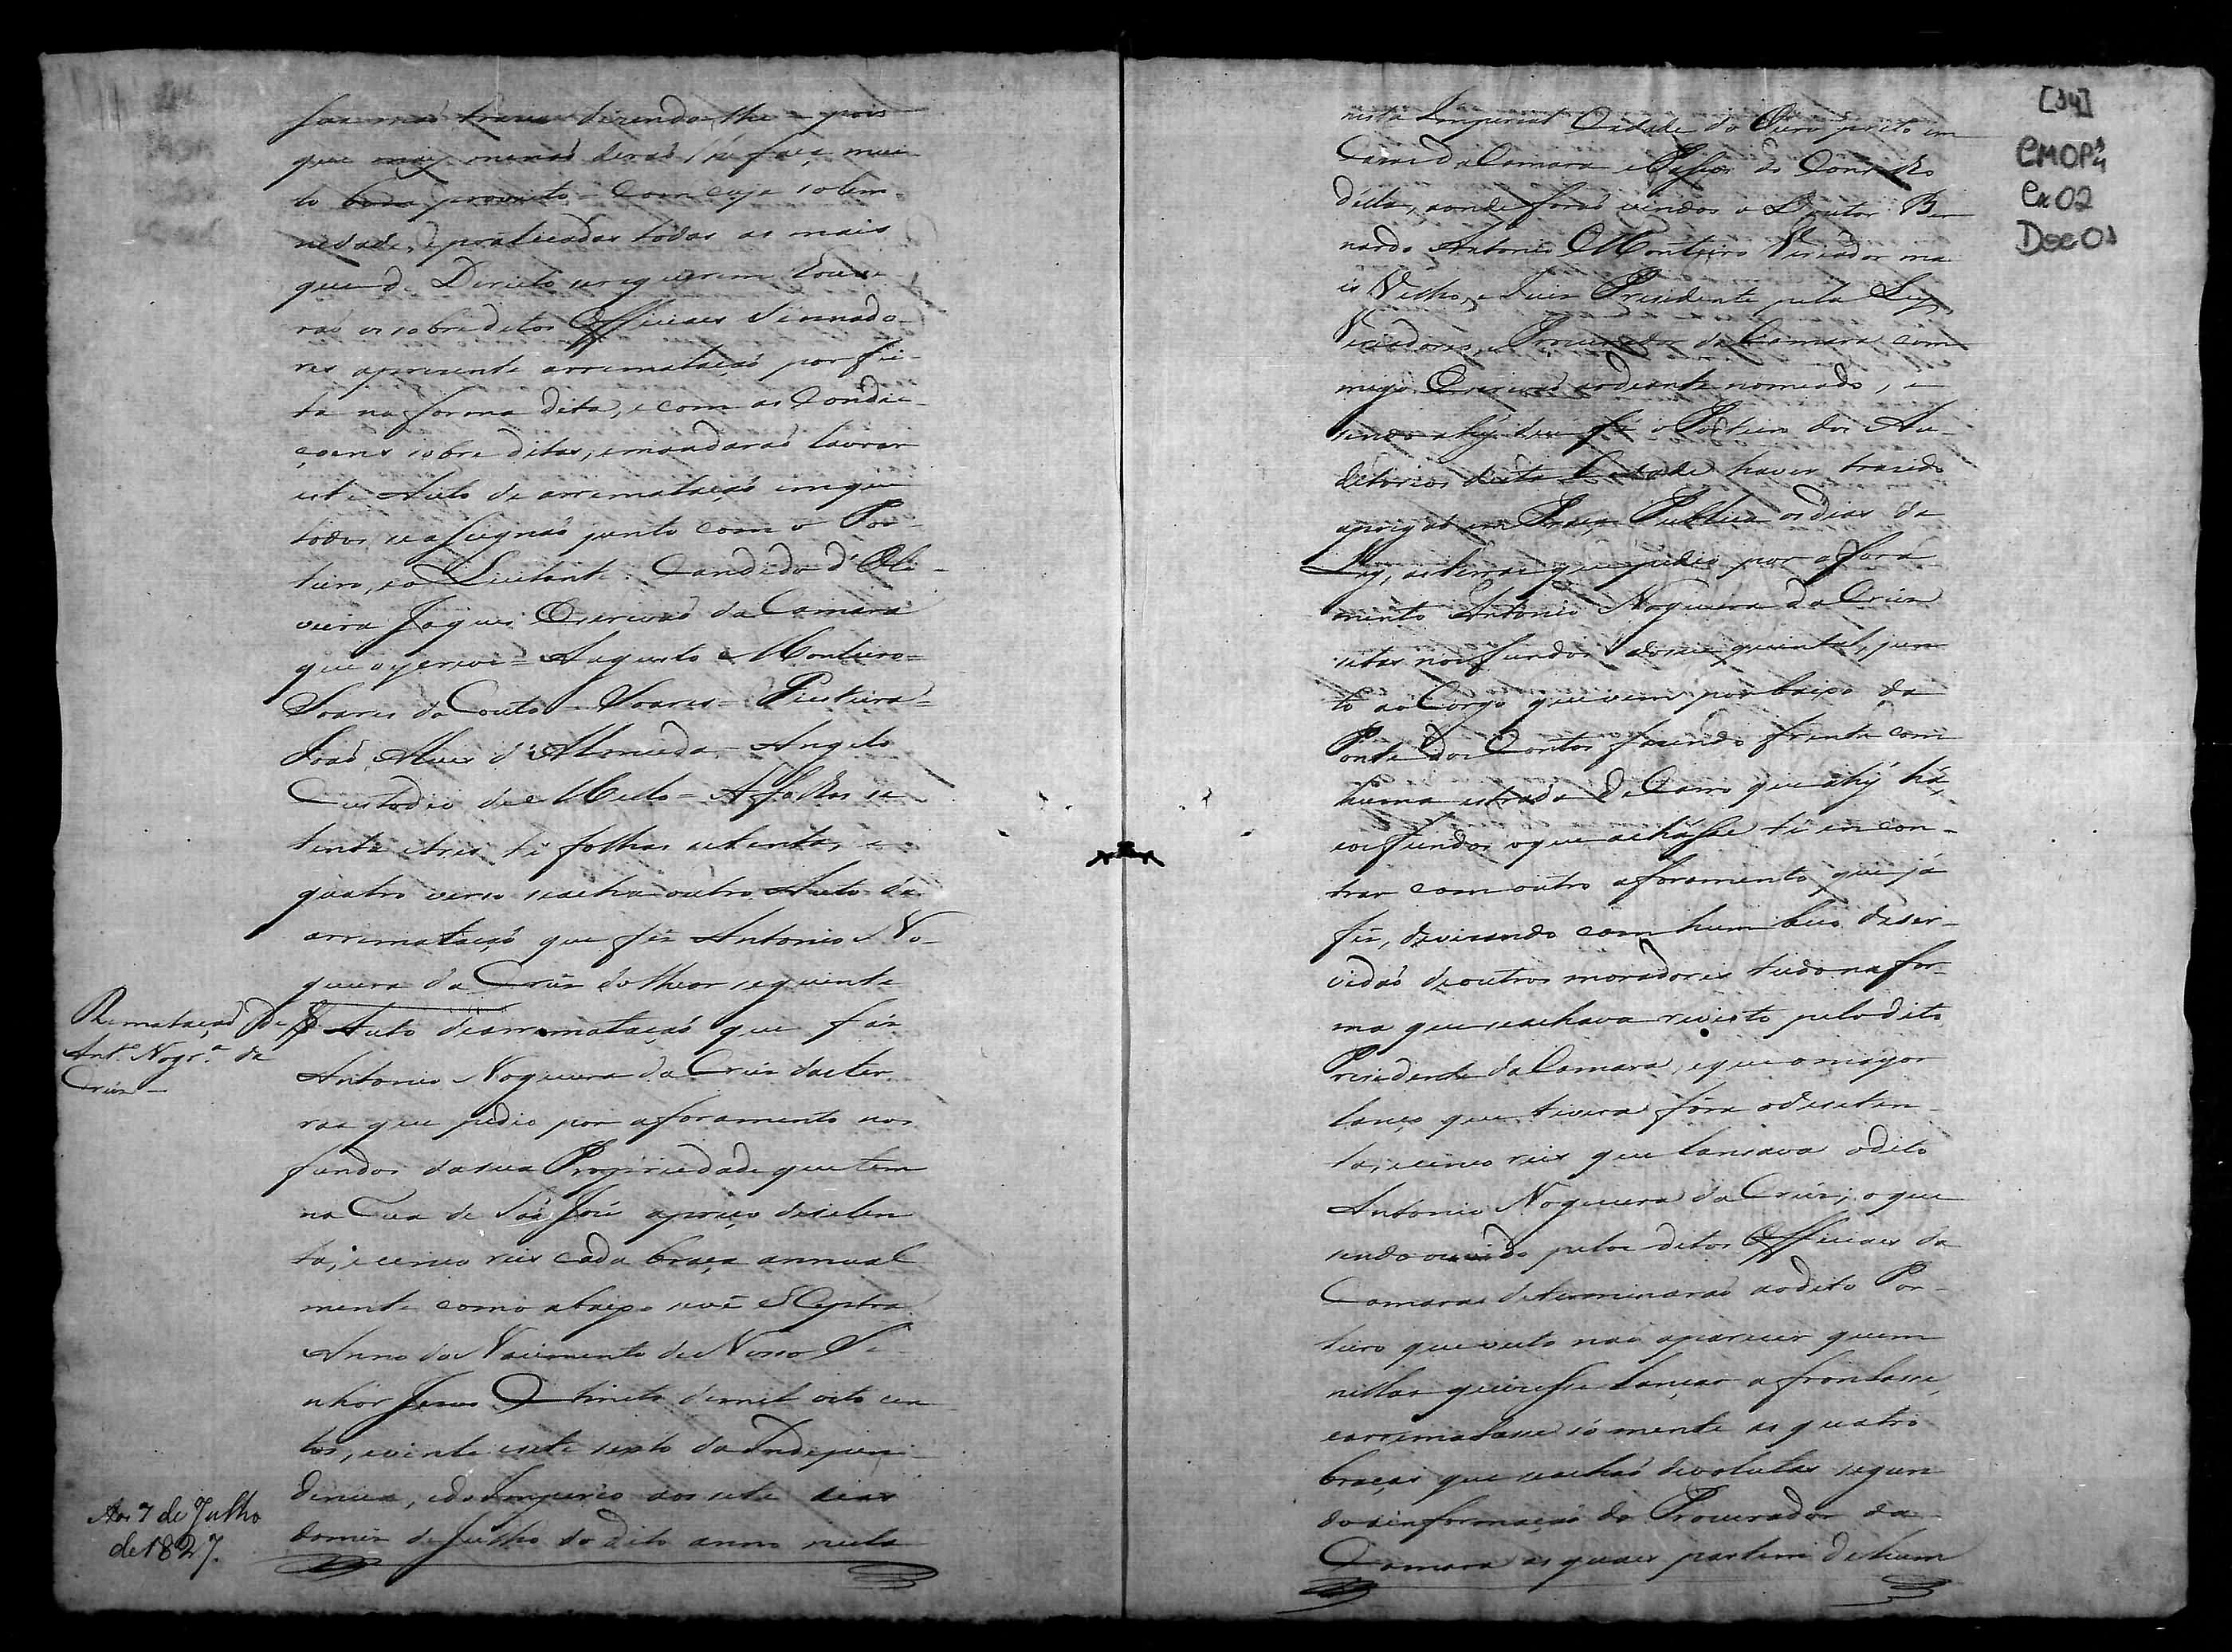 suas mãos trara dizendo-lhe = pois
que mais menos deraõ lhe faça mui
to bom proveito = Com cuja solem-
nidade, e praticadas todas as mais
que d. Direito se requerem houve-
raõ os sobreditos Officiaes Vereado-
res aprezente arremataçaõ por fei-
ta na forma dita, e com as Condic-
çoens sobreditas, e mandaraõ lavrar
este Auto de arremataçaõ em que
todos se assignaõ junto com o Por-
teiro, e o Licitante. Candido d'Oli-
veira Jaques Escrivaõ da Camara
que o escrevi = Augusto = Monteiro =
Soares do Couto = Soares =
Joaõ Alves d'Almeida = Angelo
Custodio de Mello = A folhas se
tenta e tres té folhas setenta, e
quatro verso se acha outro Auto de
arremataçaõ que fez Antonio No-
gueira da Crûz do theor seguinte
Rematação de
Ant.º Nogr.ª da
Crûz =
Auto de arremataçaõ que fáz
Antonio Nogueira da Crûz das ter-
ras que pedio por aforamento nos
fundos da sua Propriedade que tem
na Rua de Saõ José a preço de seten
ta, e cinco reis cada braça annual
mente como abaixo se vê e Registra
Anno do Nascimento de Nosso Se-
nhor Jesus Christo de mil oito cen
tos, e vinte e sete sexto da Indepen-
dencia, e do Imperio aos sete dias
do mêz de Julho do dito anno nesta
Aos 7 de Julho
de 1827.
[34]
CMOP
Cx 02
Doc 01
nesta Imperial Cidade do Ouro preto em
Caza da Camara e Passos do Concelho
d'ella, aonde foraõ vindos o Doutor Ber
nardo Antonio Monteiro Vereador ma
is Velho, e Juiz Prezidente pela Ley,
Vereadores, e Procurador da Camara com
migo Escrivaõ ao diante nomeado, e
sendo ahy deu fé o Porteiro dos Au-
ditorios desta Cidade haver trazido
a pregaõ em Praça Publica os dias da
Ley, as terras que pedio por afora
mento Antonio Nogueira da Crûz
sitas nos fundos do seu quintal, jun
to ao Corgo que vem por baixo da
Ponte dos Contos fazendo frente com
huma estrada de Carro que ahy há,
e os fundos o que achásse té encon-
trar com outro aforamento que já
fêz, devizando com hum beco de ser-
vidaõ de outros moradores tudo na for-
ma que se achava revisto pelo dito
Prezidente da Camara, e que o mayor
lanço que tivera fôra o de seten-
ta, e cinco reis que lansava o dito
Antonio Nogueira da Crûz; o que
sendo ouvido pelos ditos Officiaes da
Camara determinaraõ ao dito Por-
teiro que visto naõ aparecer quem
nellas quizesse lançar afrontasse,
e arrematasse só mente as quatro
braças que se achaõ devolutas segun
do a informaçaõ do Procurador da
Camara as quaes partem de hum